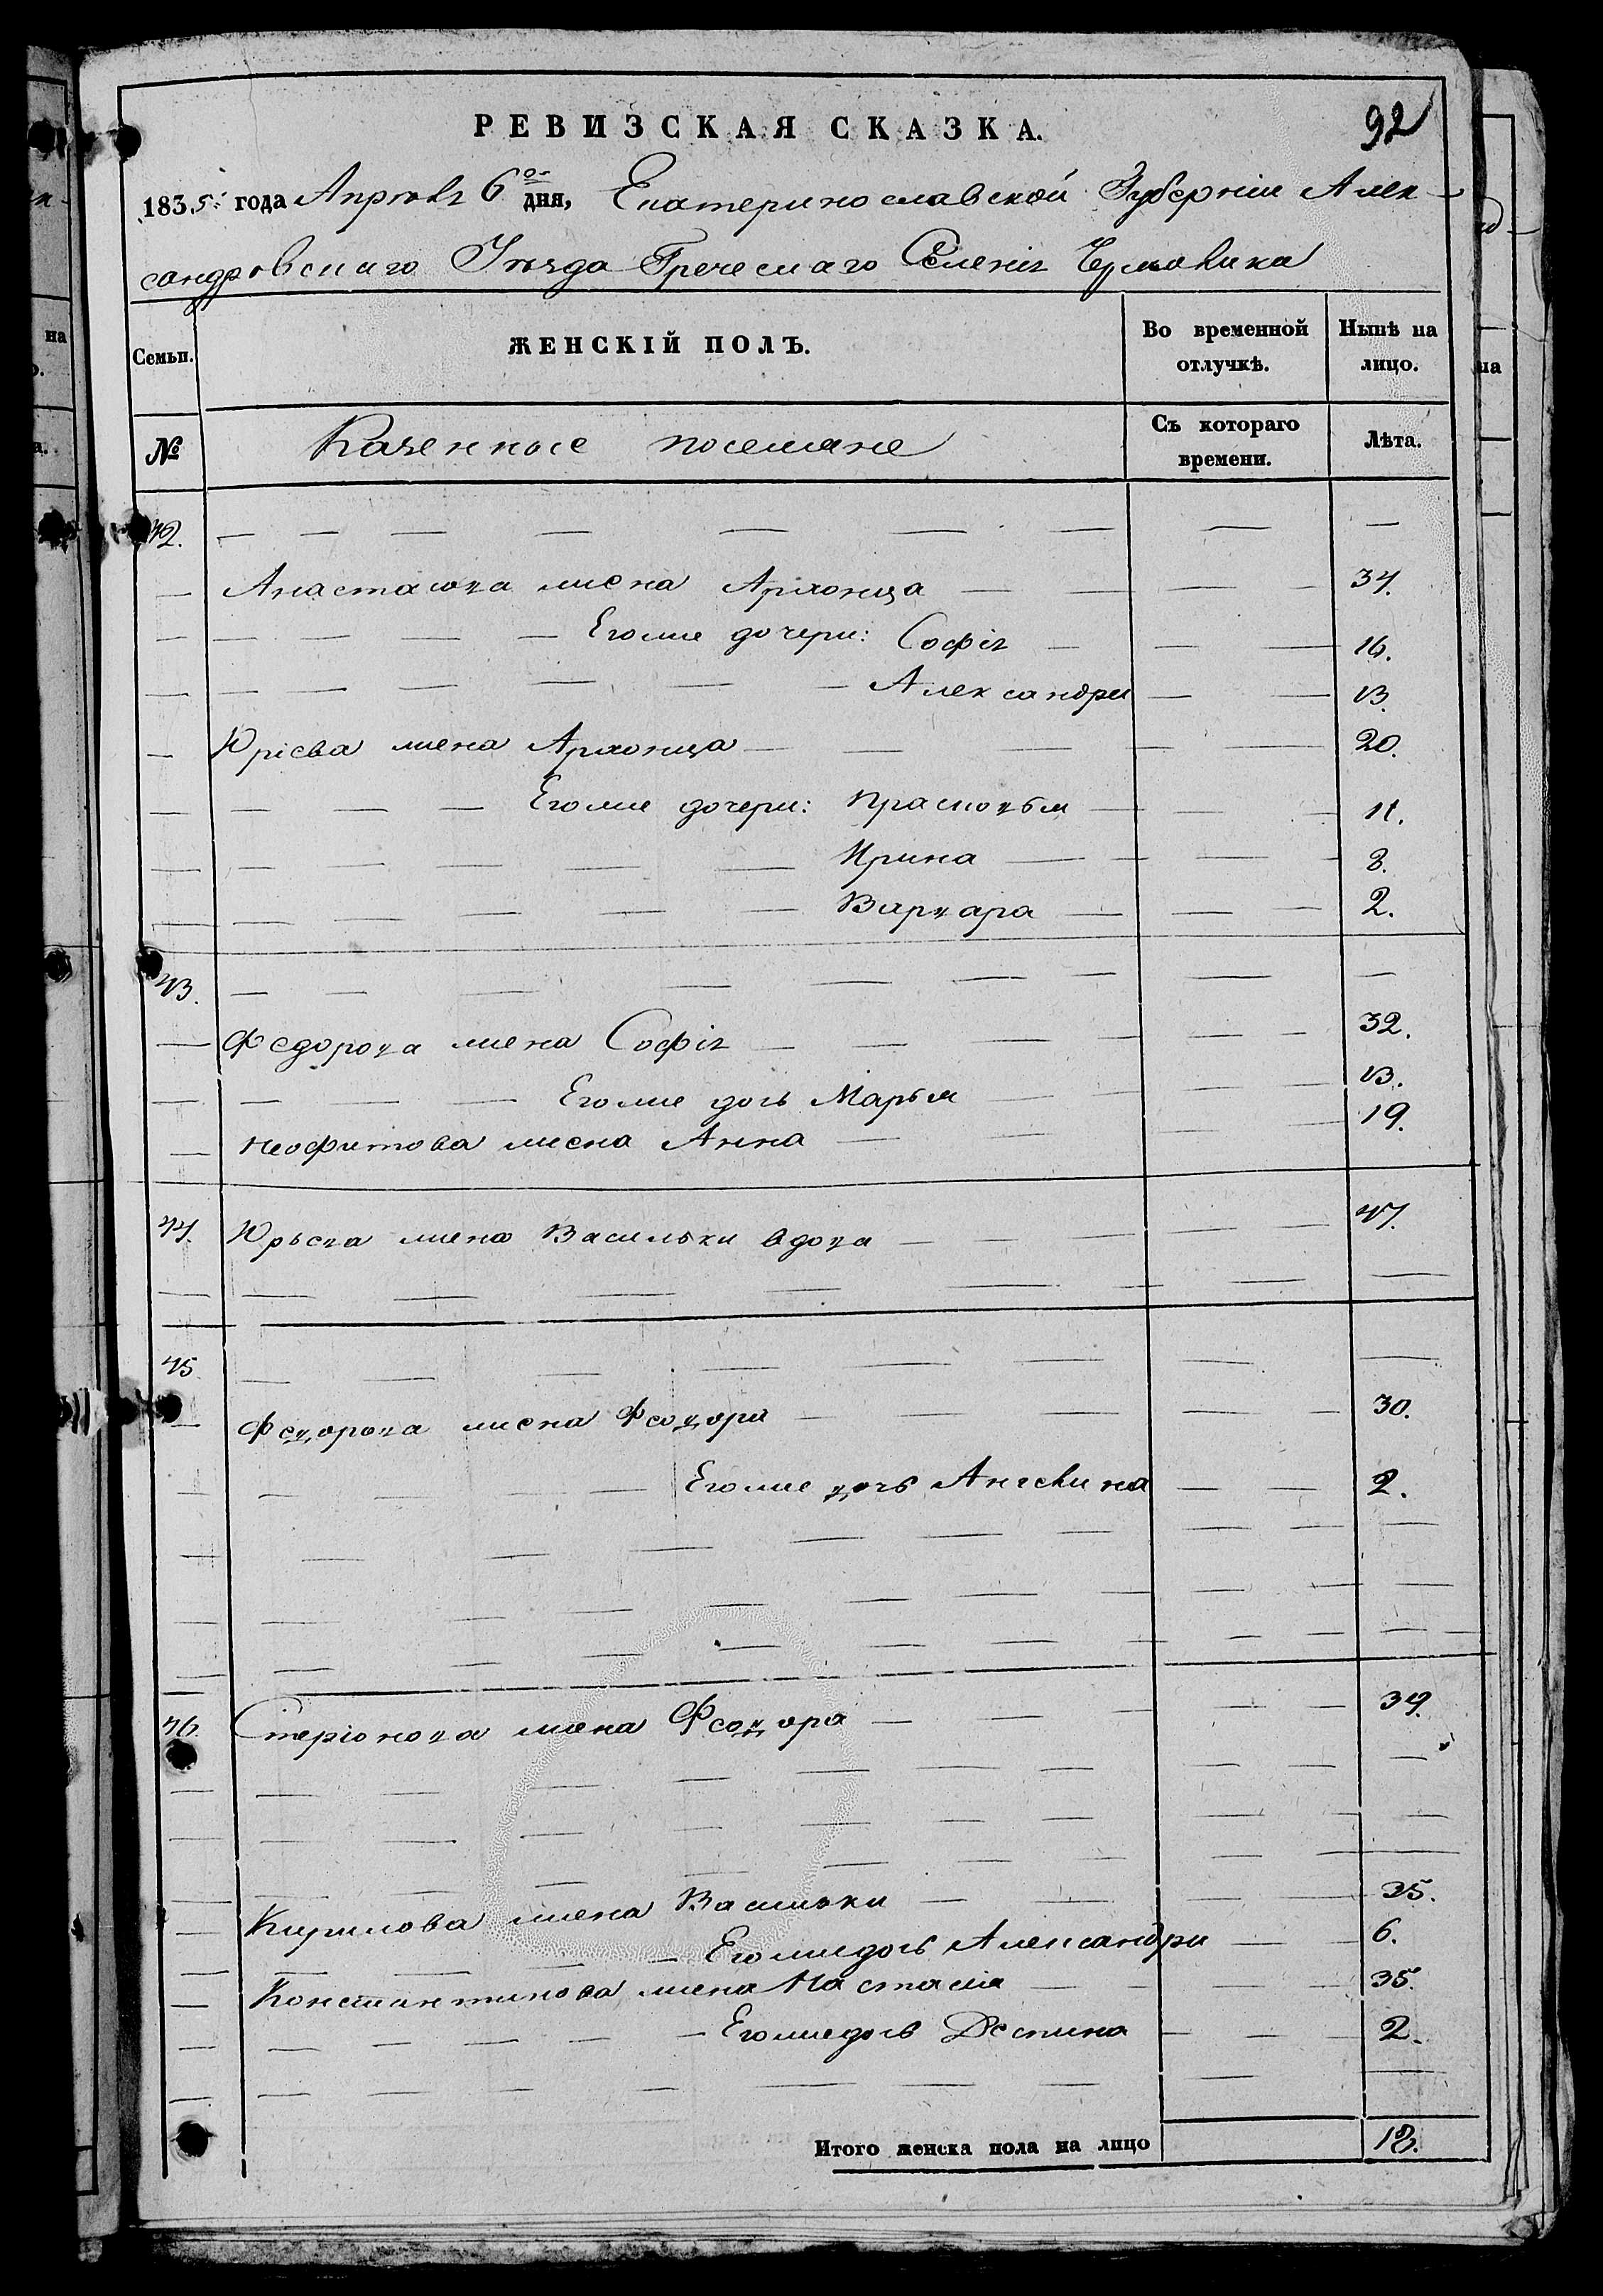 РЕВИЗСКАЯ СКАЗКА.
92
1835: года Апреля 6го дня, Екатеринославской Губерніи Алек-
сандровскаго Уѣзда Греческаго Селенія Чермалика
Семьи.
ЖЕНСКІЙ ПОЛЪ.
Во временной отлучкѣ.
Нынѣ на лицо.
№
Казенные поселяне
Съ котораго времени.
Лѣта.
42. — — — — — — — — —
— Анастасова жена Архонца — — — — 34.
— — — — — Егоже дочери: Софія — — — 16.
— — — — — — — Александра — — 13.
— Юрієва жена Архонца — — — — — 20.
— — — — Егоже дочери: Прасковья — — — 11.
— — — — — — Ирина — — — — 8.
— — — — — — — Варвара — — — 2.
43. — — — — — — — — — —
— Федорова жена Софія — — — — — 32.
— — — — Егоже дочь Марья — — — — 13.
— Неофитова жена Анна — — — — 19.
44. Юрьева жена Васильки вдова — — — — — 47.
— — — — — — — — — —
45. — — — — — — — — —
— Федорова жена Феодора — — — — — 30.
— — — — Егоже дочь Ангелина — — 2.
— — — — — — — — —
— — — — — — — — —
— — — — — — — — —
46. Стеріонова жена Феодора — — — — — 39.
— — — — — — — — —
— — — — — — — — —
— — — — — — — — —
— Кирилова жена Васильки — — — — 35.
— — — — — Егоже дочь Александра — — 6.
— Константинова жена Настасія — — — — 35.
— — — — — — Егоже дочь Деспина — — — 2.
— — — — — — — — —
Итого женска пола на лицо
18.